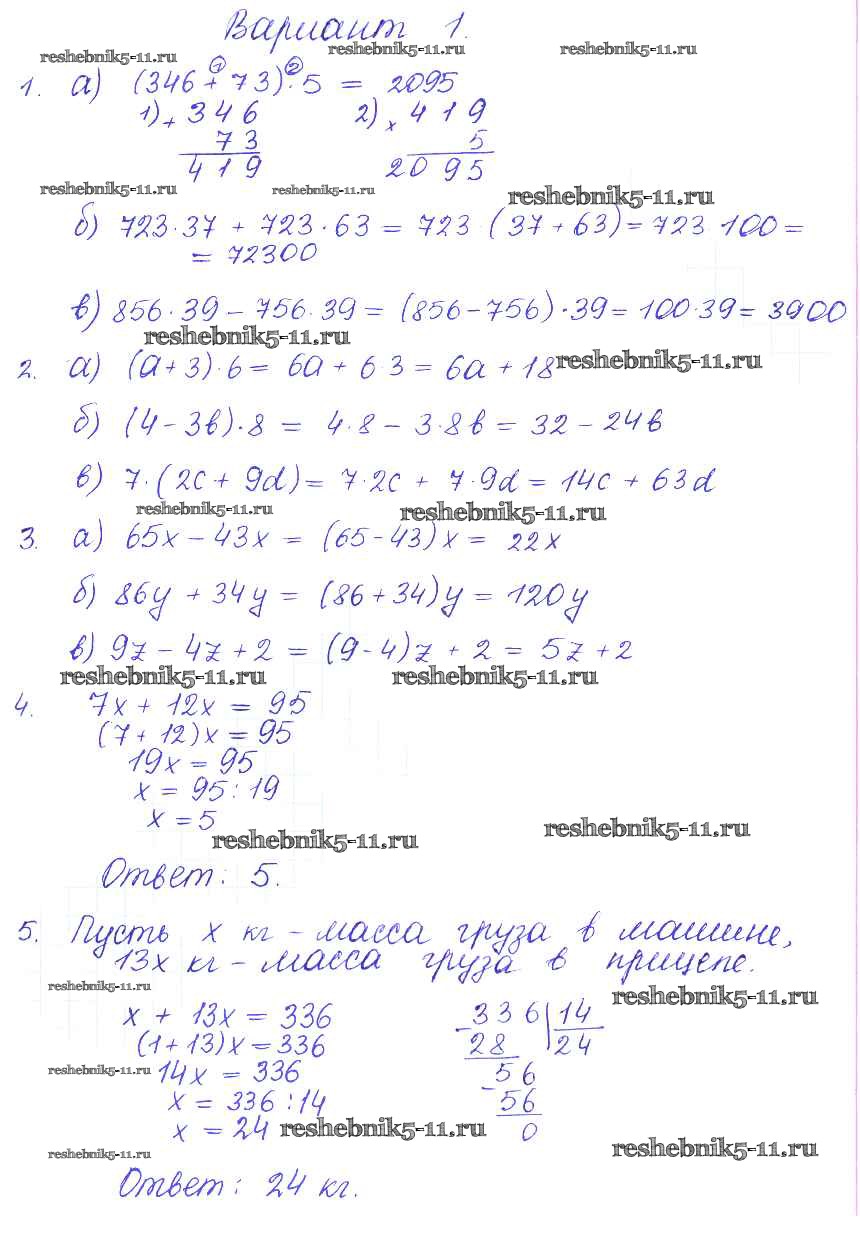 Вариант 1.
reshebnik5-11.ru reshebnik5-11.ru reshebnik5-11.ru
1. а) (346 + 73) · 5 = 2095
1) + 346 2) × 419
73 5
419 2095
reshebnik5-11.ru reshebnik5-11.ru reshebnik5-11.ru
б) 723·37 + 723·63 = 723 (37 + 63) = 723 100 =
= 72300
в) 856·39 − 756·39 = (856 − 756)·39 = 100·39 = 3900
reshebnik5-11.ru
2. а) (a + 3)·6 = 6a + 6 3 = 6a + 18 reshebnik5-11.ru
б) (4 − 3в)·8 = 4·8 − 3·8в = 32 − 24в
в) 7·(2c + 9d) = 7·2c + 7·9d = 14c + 63d
reshebnik5-11.ru reshebnik5-11.ru
3. а) 65x − 43x = (65 − 43)x = 22x
б) 86y + 34y = (86 + 34)y = 120y
в) 9z − 4z + 2 = (9 − 4)z + 2 = 5z + 2
reshebnik5-11.ru reshebnik5-11.ru
4. 7x + 12x = 95
(7 + 12)x = 95
19x = 95
x = 95 : 19
x = 5
reshebnik5-11.ru reshebnik5-11.ru
Ответ: 5.
5. Пусть x кг − масса груза в машине,
13x кг − масса груза в прицепе.
reshebnik5-11.ru reshebnik5-11.ru
x + 13x = 336 − 336 | 14
(1 + 13)x = 336 28 24
reshebnik5-11.ru 14x = 336 − 56
x = 336 : 14 56
x = 24 reshebnik5-11.ru 0
reshebnik5-11.ru reshebnik5-11.ru
Ответ: 24 кг.